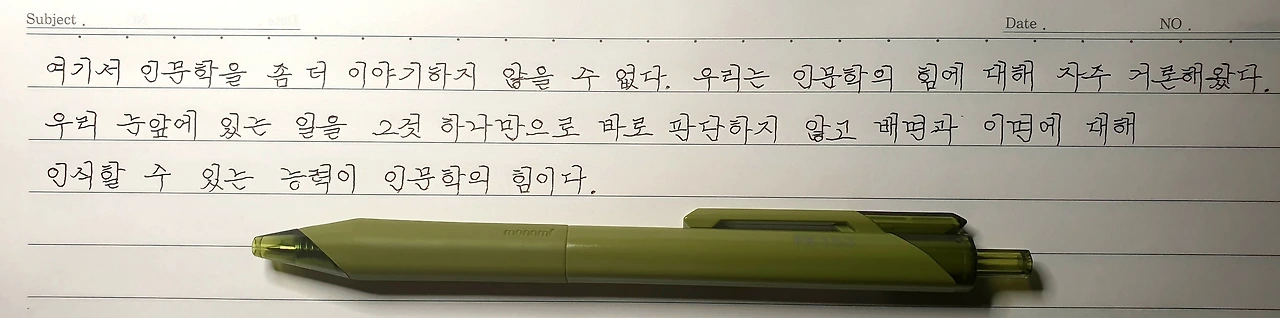 Subject .
Date .
NO .
여기서 인문학을 좀 더 이야기하지 않을 수 없다. 우리는 인문학의 힘에 대해 자주 거론해왔다.
우리 눈앞에 있는 일을 그것 하나만으로 바로 판단하지 않고 배면과 이면에 대해
인식할 수 있는 능력이 인문학의 힘이다.
monami